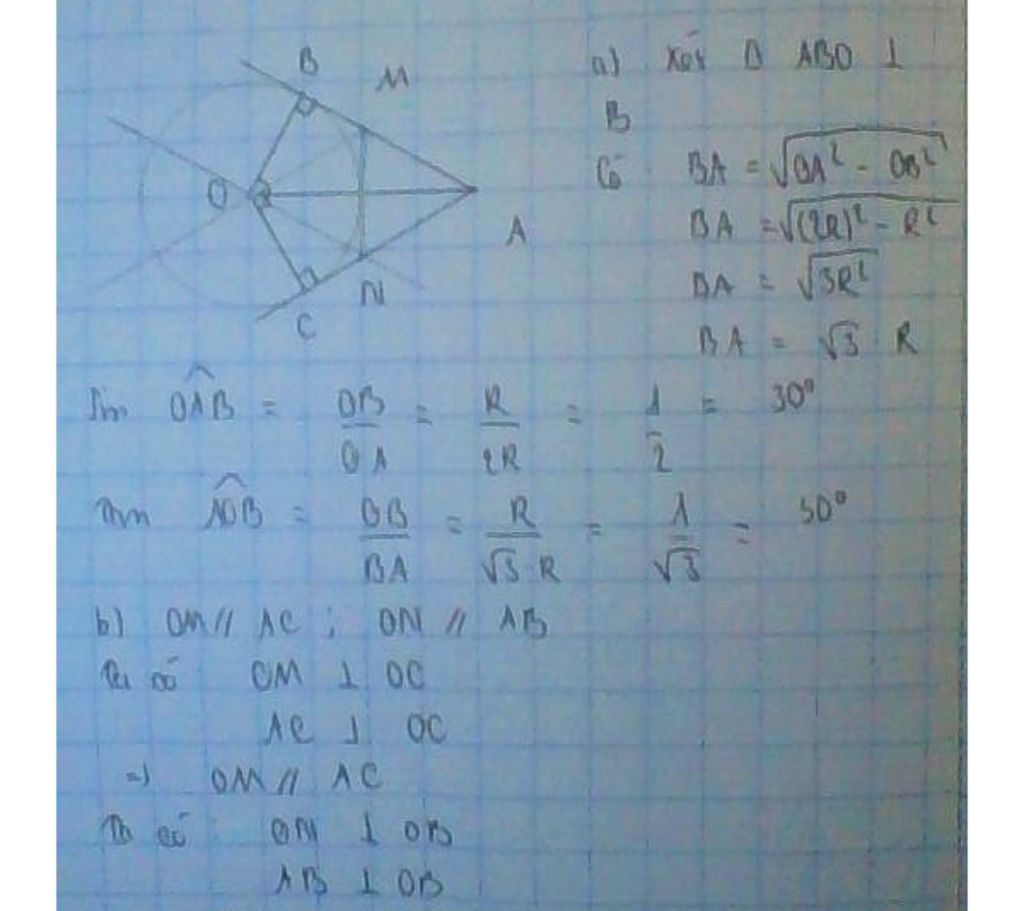 B
M
O
A
N
C
a) Xét Δ ABO ⊥
B
Có BA = √(OA² - OB²)
BA = √((2R)² - R²)
BA = √(3R²)
BA = √3 · R
Sin OAB = OB/OA = R/2R = 1/2 = 30°
OB/BA = R/(√3·R) = 1/√3 =
b) OM // AC ; ON // AB
Ta có OM ⊥ OC
AC ⊥ OC
=) OM // AC
Ta có ON ⊥ OB
AB ⊥ OB